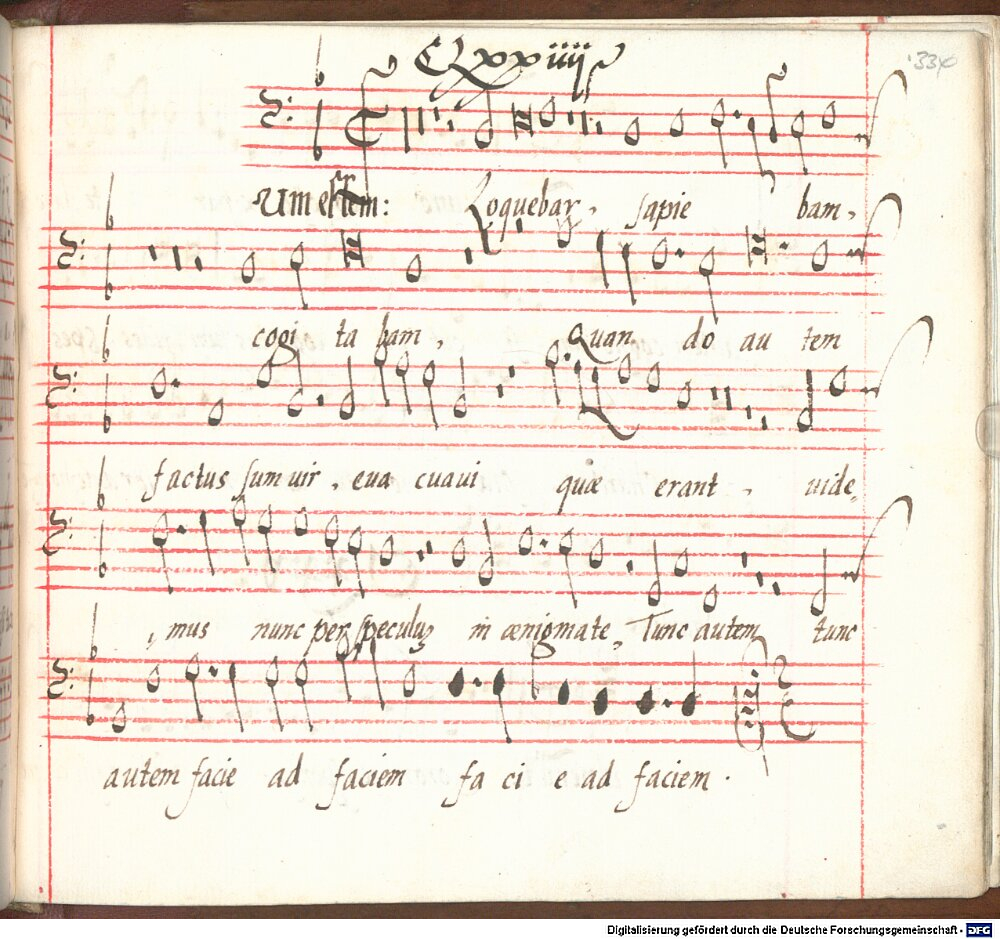 Clxxiiij
Um essem: Loquebar, sapie bam,
cogi ta bam, Quan do au tem
factus sum uir, eua cuaui quæ erant, uide,
,mus nunc per speculuʒ in ænigmate, Tunc autem tunc
autem facie ad faciem fa ci e ad faciem.
Digitalisierung gefördert durch die Deutsche Forschungsgemeinschaft - DFG